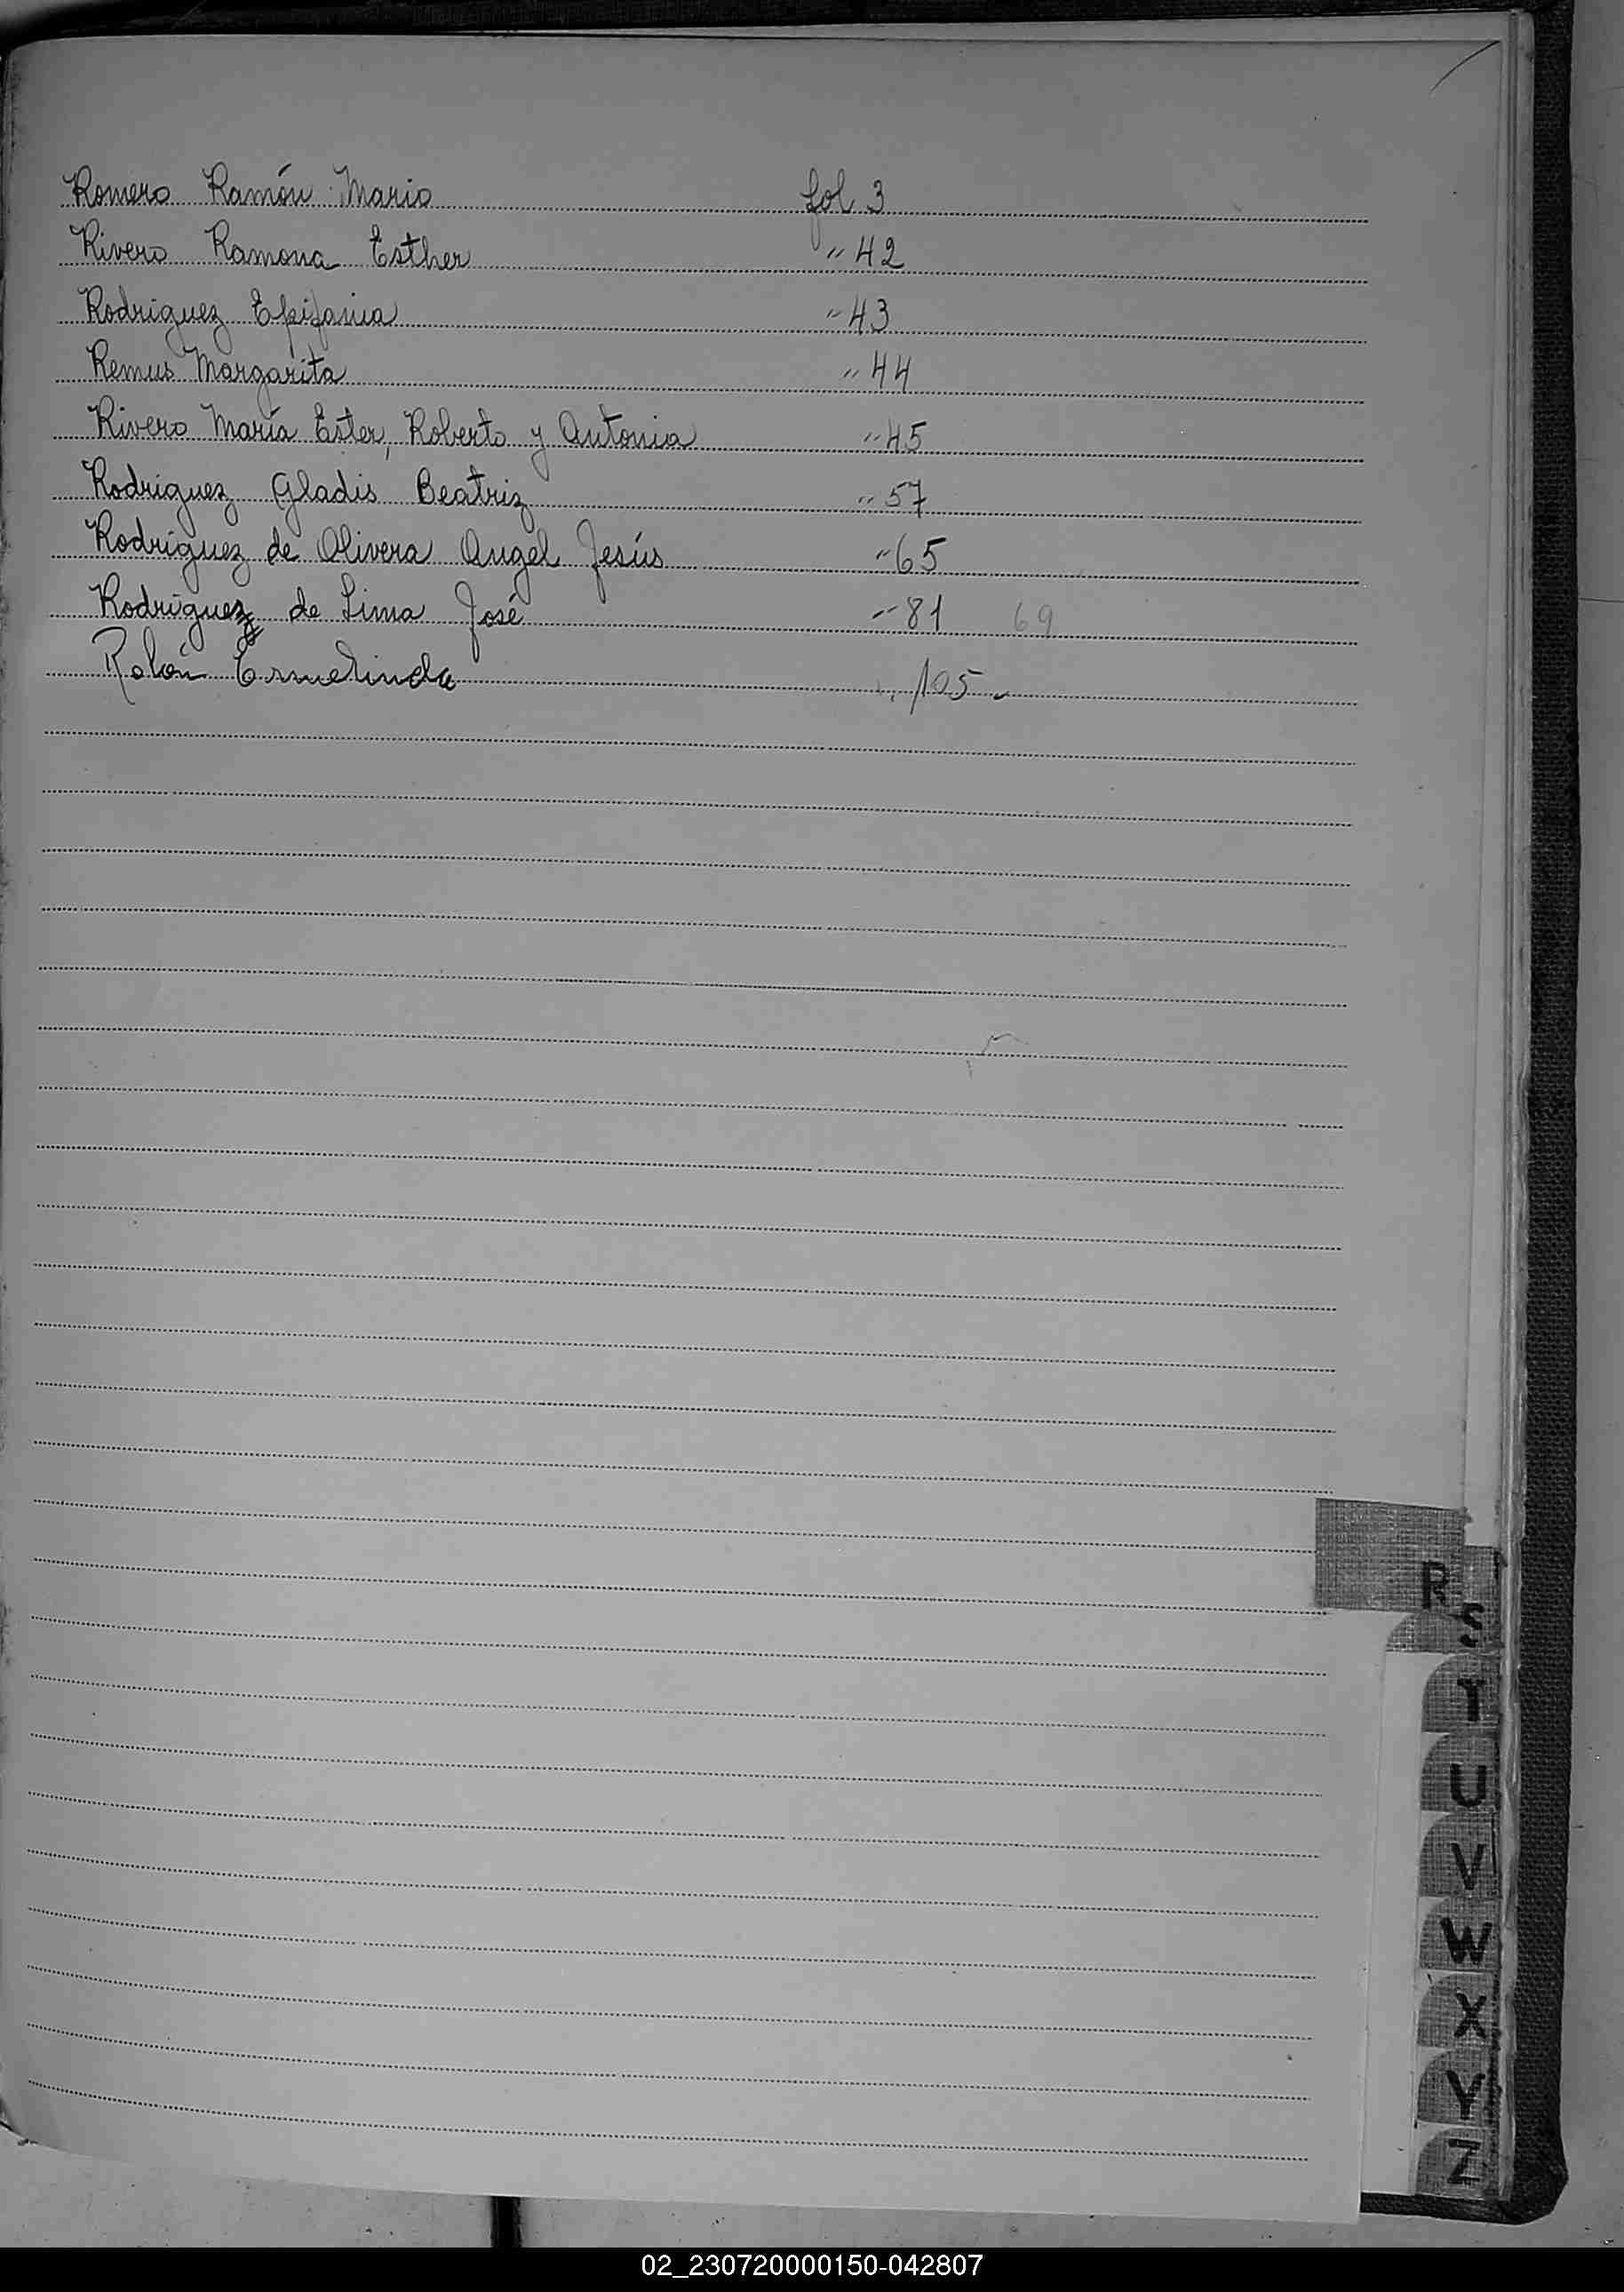 Romero Ramón Mario fol 3
Rivero Ramona Esther " 42
Rodriguez Epifania " 43
Remus Margarita " 44
Rivero María Ester, Roberto y Antonia " 45
Rodriguez Gladis Beatriz " 57
Rodríguez de Olivera Angel Jesús " 65
Rodriguez de Lima José " 81 69
Rolón Ermelinda " 105
R
S
T
U
V
W
X
Y
Z
02_230720000150-042807